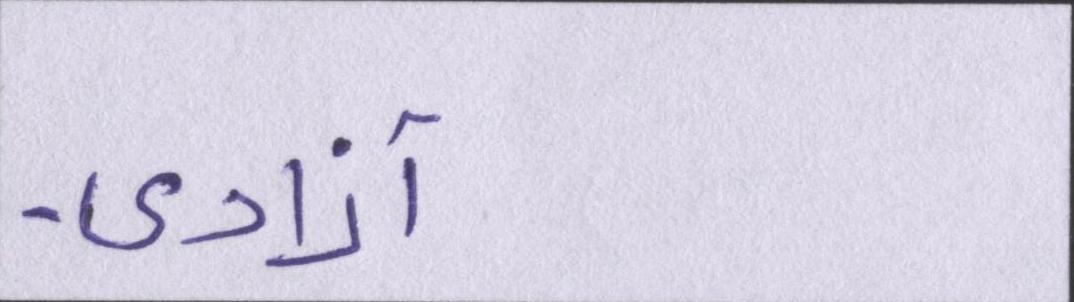 آزادی۔